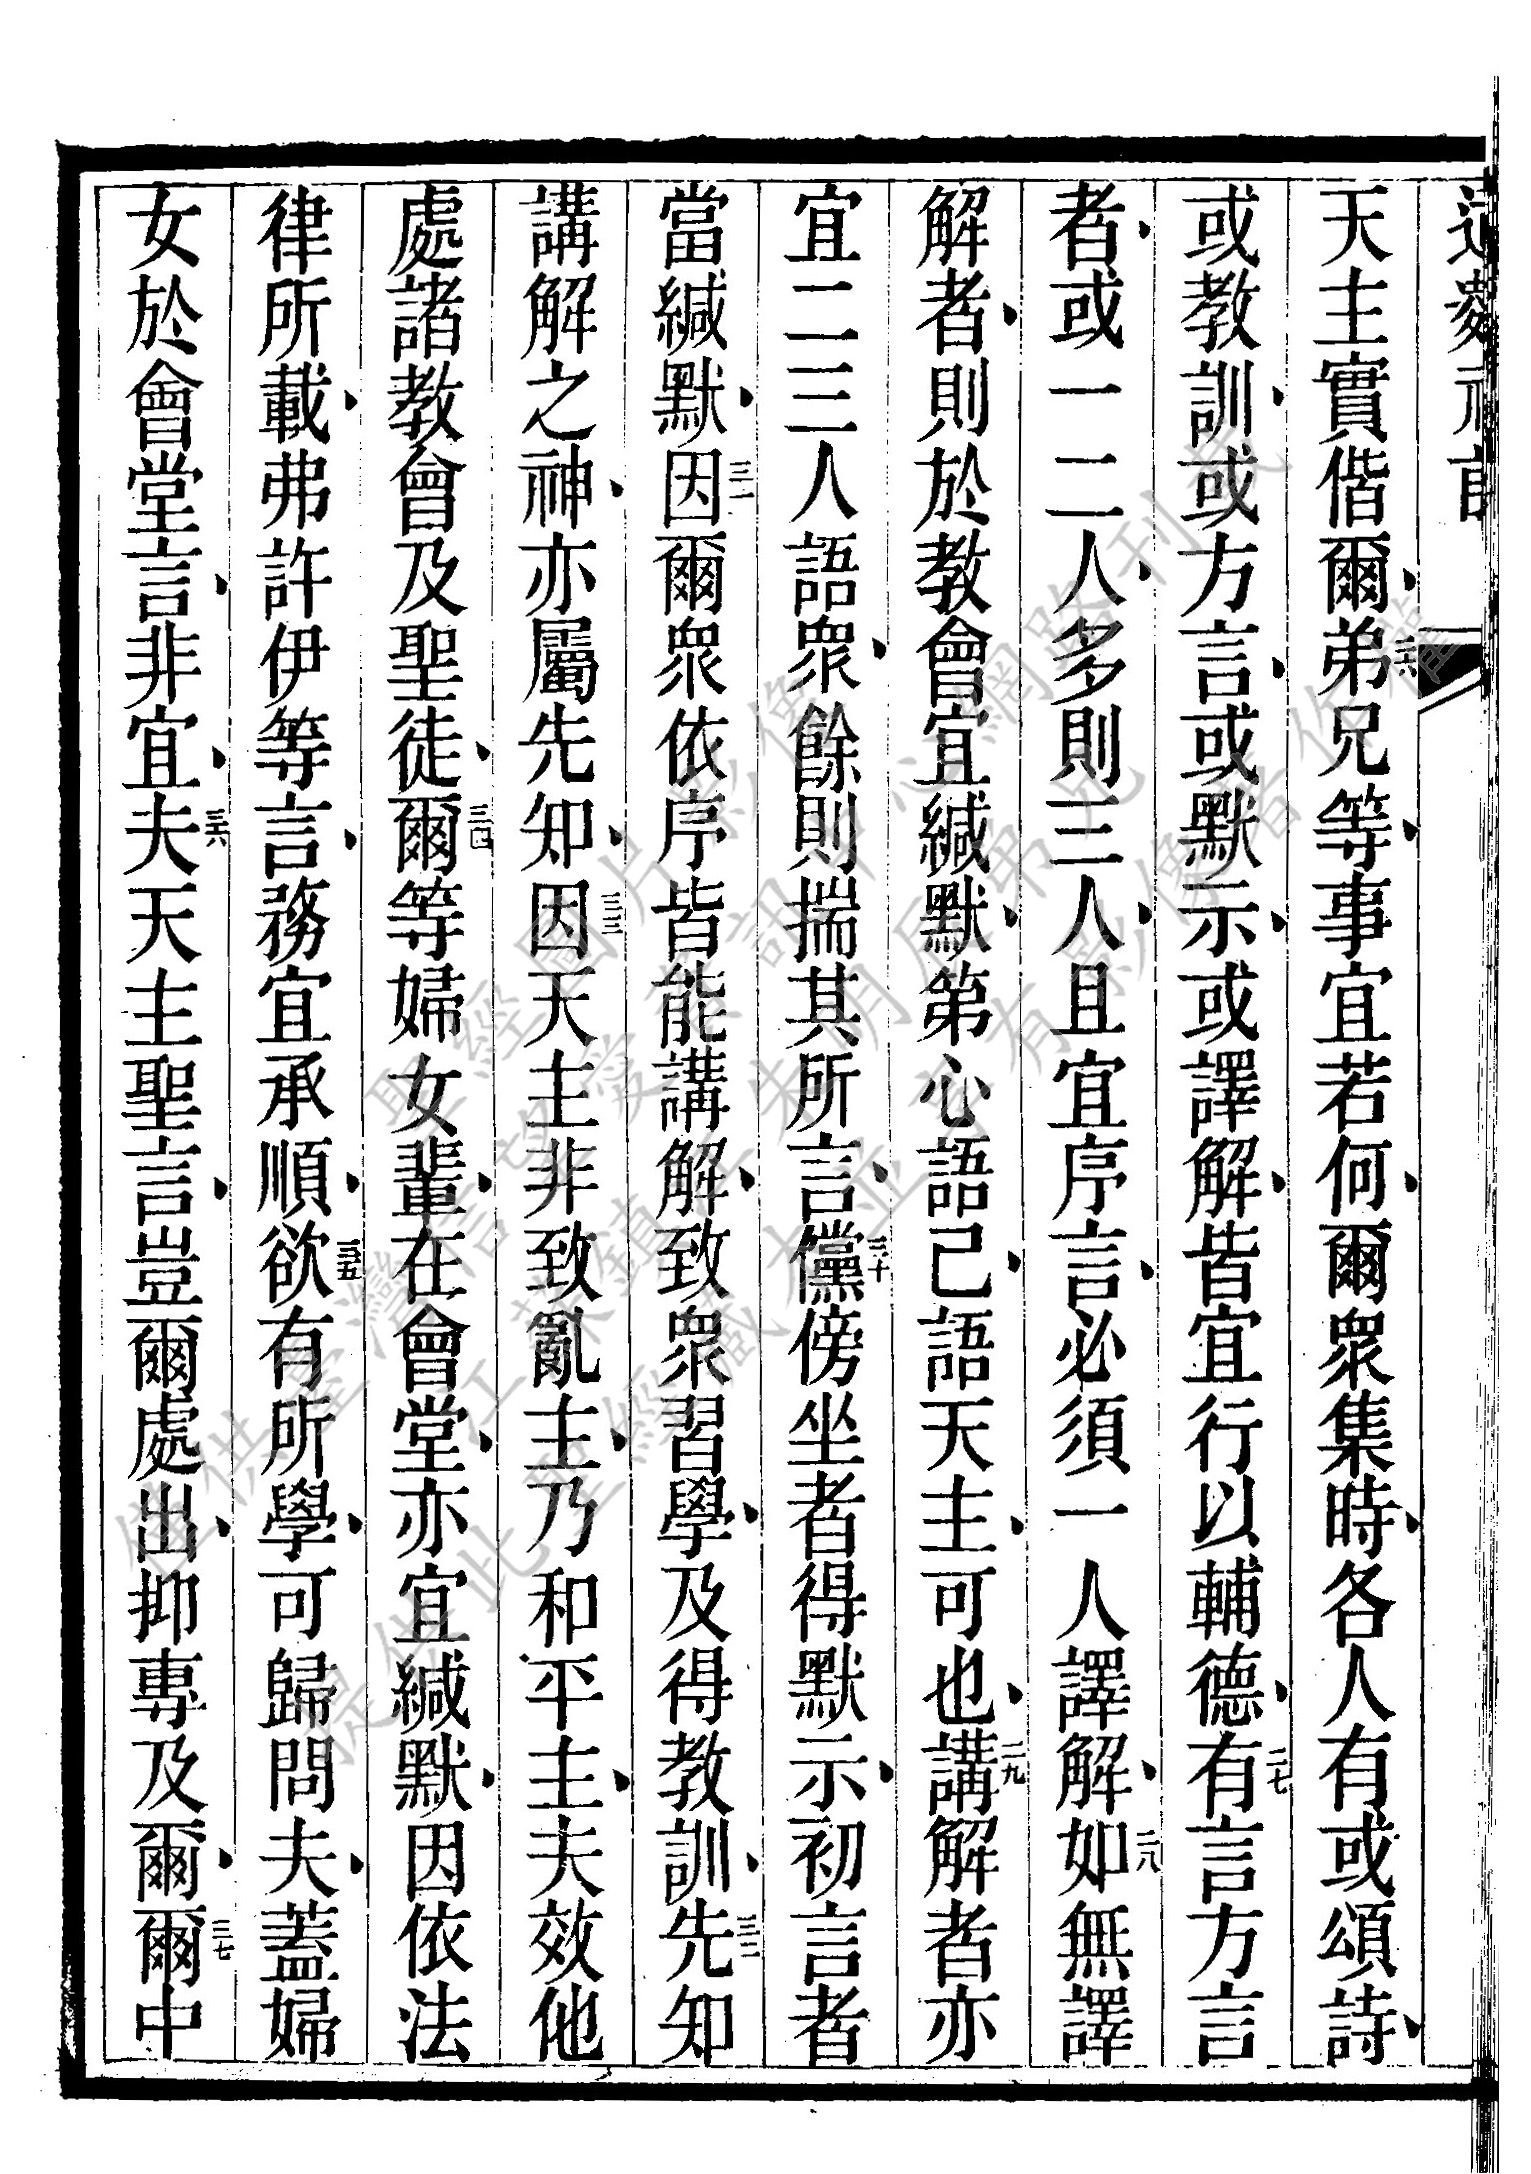 天主實偕爾弟二六兄等事宜若何爾衆集時各人有或頌詩
或教訓或方言或默示或譯解皆宜行以輔德有二七言方言
者或一二人多則三人且宜序言必須一人譯解如二八無譯
解者則於教會宜緘默第心語己語天主可也講二九解者亦
宜二三人語衆餘則揣其所言儻三十傍坐者得默示初言者
當緘默因三一爾衆依序皆能講解致衆習學及得教訓先三二知
講解之神亦屬先知因三三天主非致亂主乃和平主夫效他
處諸教會及聖徒爾三四等婦女輩在會堂亦宜緘默因依法
律所載弗許伊等言務宜承順欲三五有所學可歸問夫蓋婦
女於會堂言非宜夫三六天主聖言豈爾處出抑專及爾爾三七中